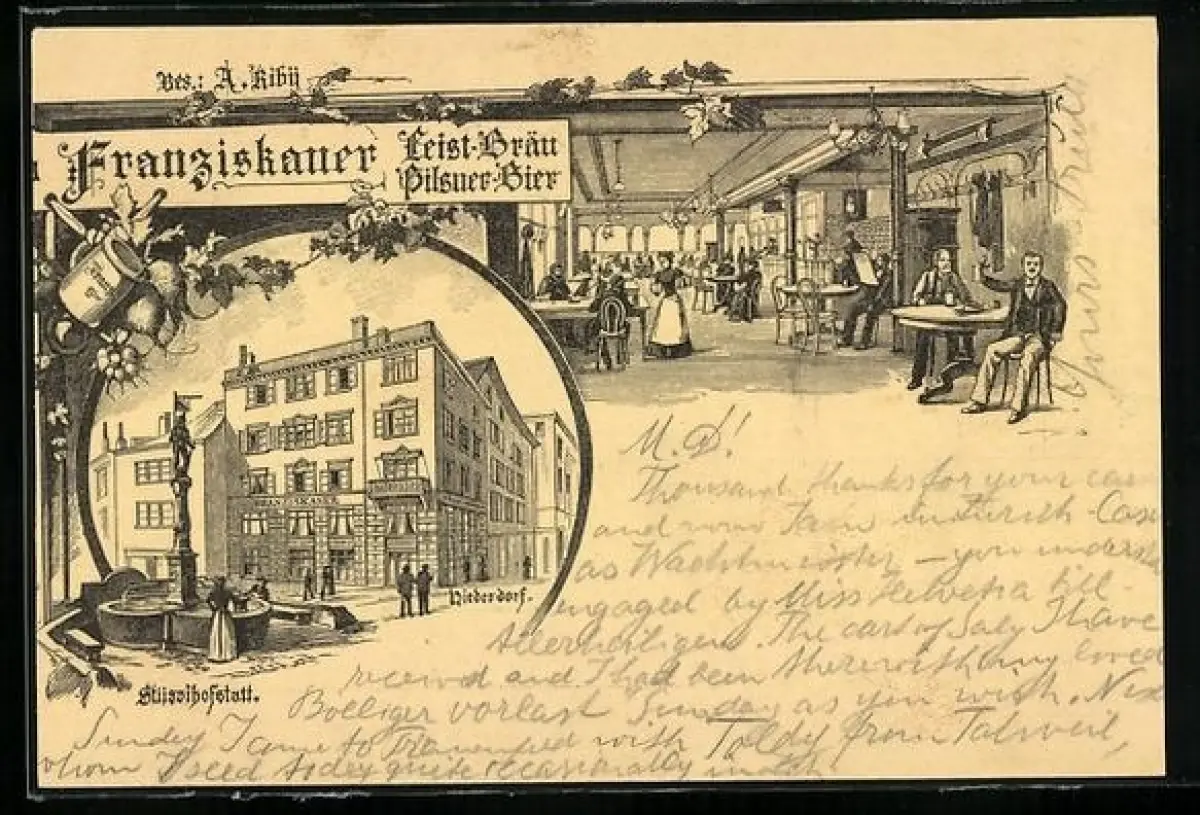 Bes.: A. Kibij
Franziskaner
Leist-Bräu
Pilsner-Bier
FRANZISKANER
Niederdorf.
Stüssihofstatt.
M. D!
Thousand thanks for your
and now I am in Zurich
as Wachtmeister – you
engaged by Miss Helvetia till
Allerheiligen. The card of Saly I have
received and I had been there with my loved
Bolliger vorlast Sunday as you wish.
Sunday I came to with Toldy from Talweil,
whom I seed today quite occasionally in
Yours